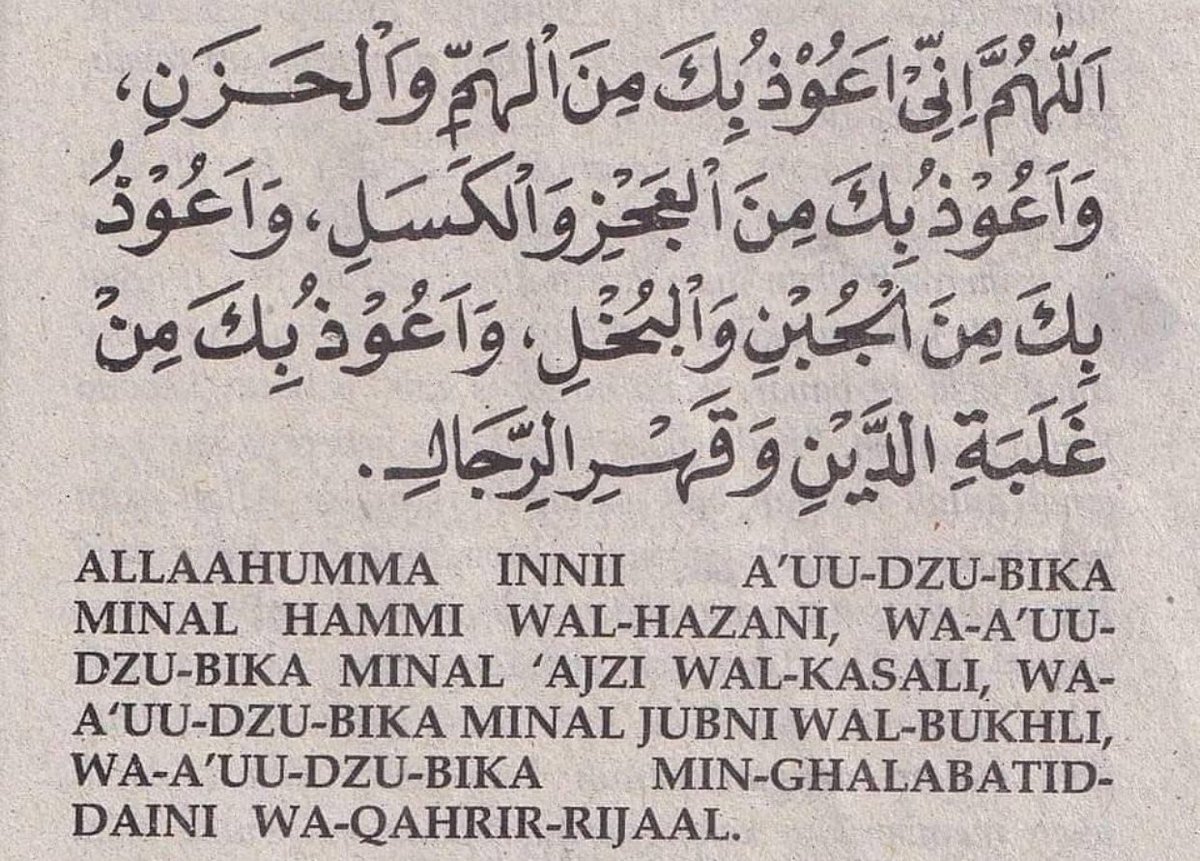 اَللّٰهُمَّ اِنِّيْ اَعُوْذُ بِكَ مِنَ الْهَمِّ وَالْحَزَنِ،
وَاَعُوْذُ بِكَ مِنَ الْعَجْزِ وَالْكَسَلِ، وَاَعُوْذُ
بِكَ مِنَ الْجُبْنِ وَالْبُخْلِ، وَاَعُوْذُ بِكَ مِنْ
غَلَبَةِ الدَّيْنِ وَقَهْرِ الرِّجَالِ.
ALLAAHUMMA INNII A'UU-DZU-BIKA
MINAL HAMMI WAL-HAZANI, WA-A'UU-
DZU-BIKA MINAL ‘AJZI WAL-KASALI, WA-
A‘UU-DZU-BIKA MINAL JUBNI WAL-BUKHLI,
WA-A'UU-DZU-BIKA MIN-GHALABATID-
DAINI WA-QAHRIR-RIJAAL.